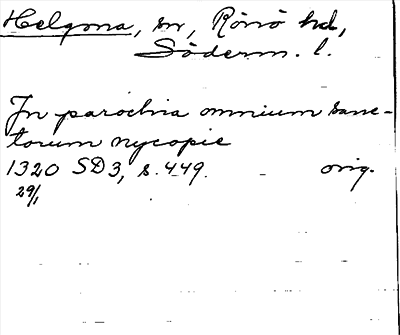 Helgona, sn, Rönö hd,
Söderm. l.
In parochia omnium sanc-
torum nycopie
1320 SD 3, s. 449. orig.
29/1